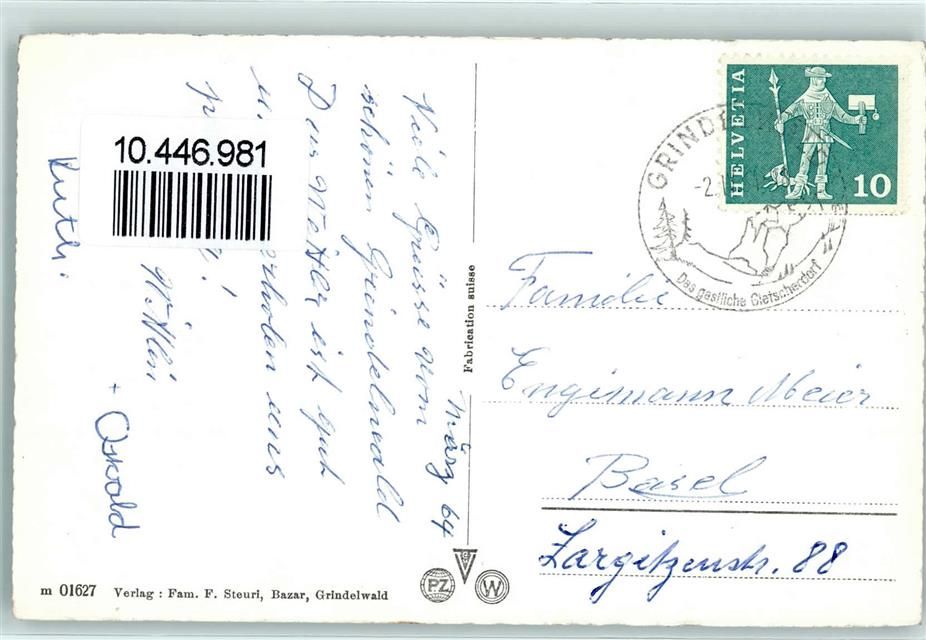 März 64
Viele Grüsse vom
schönen Grindelwald
Das Wetter ist gut
u. erholen uns
p
!
Ruthli
+ Oswald
10.446.981
Fabrication suisse
HELVETIA
10
GRINDE
-2.
Das gastliche Gletscherdorf
Familie
Engimann Meier
Basel
Largitzenstr. 88
PZ
W
m 01627 Verlag : Fam. F. Steuri, Bazar, Grindelwald